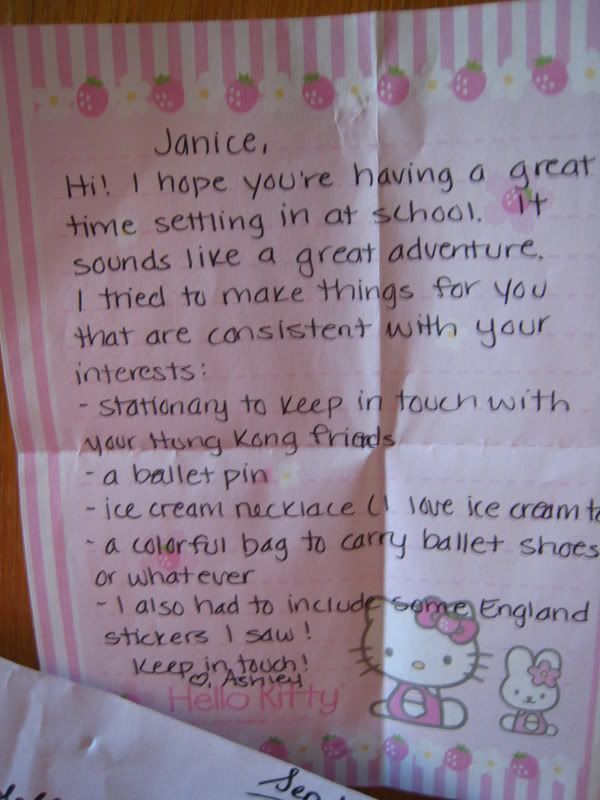 Janice,
Hi! I hope you're having a great
time settling in at school. It
sounds like a great adventure.
I tried to make things for you
that are consistent with your
interests:
- stationary to keep in touch with
your Hung Kong frieds
- a ballet pin
- ice cream necklace (I love ice cream to
- a colorful bag to carry ballet shoes
or whatever
- I also had to include some England
stickers I saw!
Keep in touch!
♡, Ashley
Hello Kitty